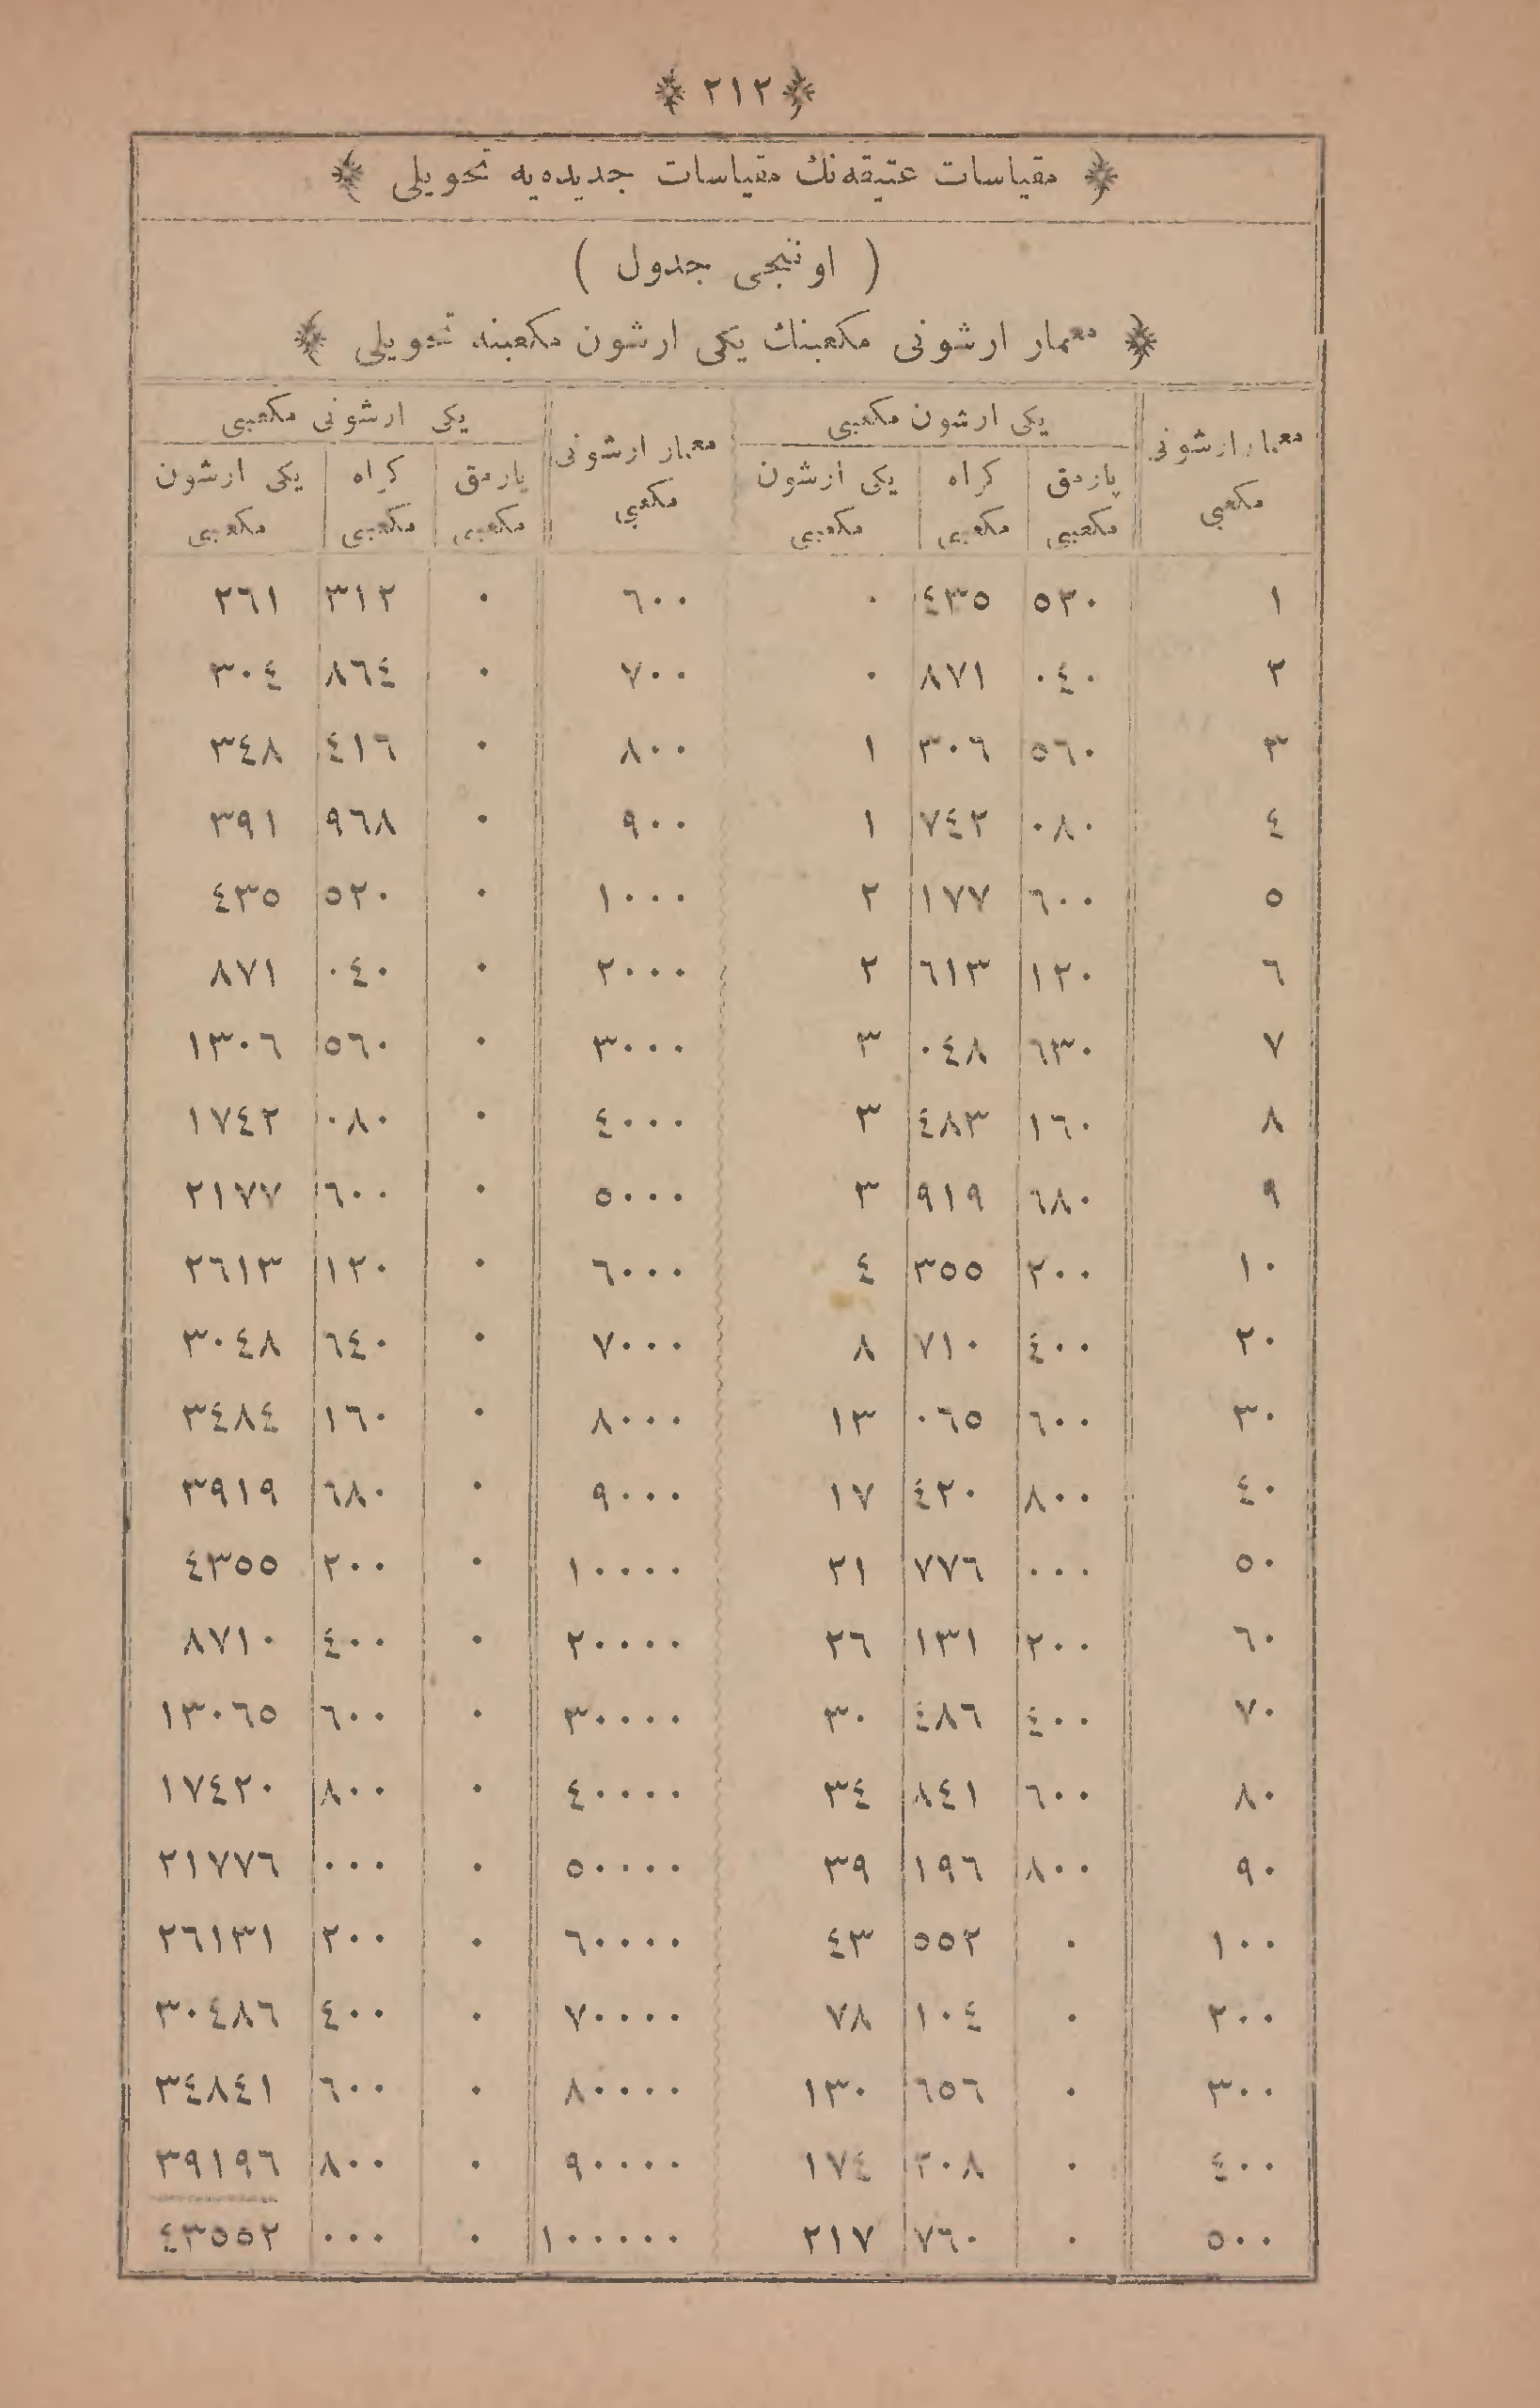 ﴿ ٢١٢ ﴾
﴿ مقیاسات عتیقه‌نك مقیاسات جدیده‌یه تحویلی ﴾
( اوننجی جدول )
﴿ معمار ارشونی مكعبنك یكی ارشون مكعبنه تحویلی ﴾
معمار ارشونی مكعبی | یكی ارشون مكعبی | معمار ارشونی مكعبی | یكی ارشونی مكعبی
پارمق مكعبی | كراه مكعبی | یكی ارشون مكعبی | پارمق مكعبی | كراه مكعبی | یكی ارشون مكعبی
١ | ٥٢٠ | ٤٣٥ | ٠ | ٦٠٠ | ٠ | ٣١٢ | ٢٦١
٢ | ٠٤٠ | ٨٧١ | ٠ | ٧٠٠ | ٠ | ٨٦٤ | ٣٠٤
٣ | ٥٦٠ | ٣٠٦ | ١ | ٨٠٠ | ٠ | ٤١٦ | ٣٤٨
٤ | ٠٨٠ | ٧٤٢ | ١ | ٩٠٠ | ٠ | ٩٦٨ | ٣٩١
٥ | ٦٠٠ | ١٧٧ | ٢ | ١٠٠٠ | ٠ | ٥٢٠ | ٤٣٥
٦ | ١٢٠ | ٦١٣ | ٢ | ٢٠٠٠ | ٠ | ٠٤٠ | ٨٧١
٧ | ٦٣٠ | ٠٤٨ | ٣ | ٣٠٠٠ | ٠ | ٥٦٠ | ١٣٠٦
٨ | ١٦٠ | ٤٨٣ | ٣ | ٤٠٠٠ | ٠ | ٠٨٠ | ١٧٤٢
٩ | ٦٨٠ | ٩١٩ | ٣ | ٥٠٠٠ | ٠ | ٦٠٠ | ٢١٧٧
١٠ | ٢٠٠ | ٣٥٥ | ٤ | ٦٠٠٠ | ٠ | ١٢٠ | ٢٦١٣
٢٠ | ٤٠٠ | ٧١٠ | ٨ | ٧٠٠٠ | ٠ | ٦٤٠ | ٣٠٤٨
٣٠ | ٦٠٠ | ٠٦٥ | ١٣ | ٨٠٠٠ | ٠ | ١٦٠ | ٣٤٨٤
٤٠ | ٨٠٠ | ٤٢٠ | ١٧ | ٩٠٠٠ | ٠ | ٦٨٠ | ٣٩١٩
٥٠ | ٠٠٠ | ٧٧٦ | ٢١ | ١٠٠٠٠ | ٠ | ٢٠٠ | ٤٣٥٥
٦٠ | ٢٠٠ | ١٣١ | ٢٦ | ٢٠٠٠٠ | ٠ | ٤٠٠ | ٨٧١٠
٧٠ | ٤٠٠ | ٤٨٦ | ٣٠ | ٣٠٠٠٠ | ٠ | ٦٠٠ | ١٣٠٦٥
٨٠ | ٦٠٠ | ٨٤١ | ٣٤ | ٤٠٠٠٠ | ٠ | ٨٠٠ | ١٧٤٢٠
٩٠ | ٨٠٠ | ١٩٦ | ٣٩ | ٥٠٠٠٠ | ٠ | ٠٠٠ | ٢١٧٧٦
١٠٠ | ٠ | ٥٥٢ | ٤٣ | ٦٠٠٠٠ | ٠ | ٢٠٠ | ٢٦١٣١
٢٠٠ | ٠ | ١٠٤ | ٧٨ | ٧٠٠٠٠ | ٠ | ٤٠٠ | ٣٠٤٨٦
٣٠٠ | ٠ | ٦٥٦ | ١٣٠ | ٨٠٠٠٠ | ٠ | ٦٠٠ | ٣٤٨٤١
٤٠٠ | ٠ | ٢٠٨ | ١٧٤ | ٩٠٠٠٠ | ٠ | ٨٠٠ | ٣٩١٩٦
٥٠٠ | ٠ | ٧٦٠ | ٢١٧ | ١٠٠٠٠٠ | ٠ | ٠٠٠ | ٤٣٥٥٢